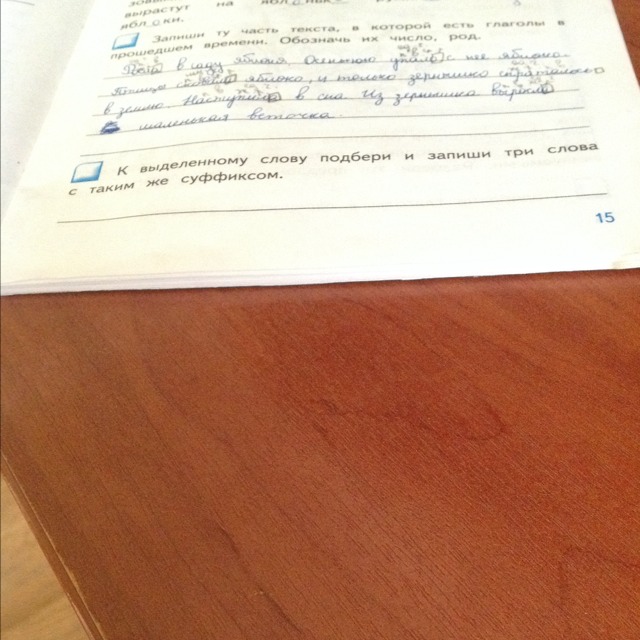 вырастут на
ки.
Запиши ту часть текста, в которой есть глаголы в
прошедшем времени. Обозначь их число, род.
в саду яблоня. Осенью упало с неё яблоко.
яблоко, и только зернышко спряталось
в землю. Из зернышка выросла
маленькая веточка.
К выделенному слову подбери и запиши три слова
с таким же суффиксом.
15